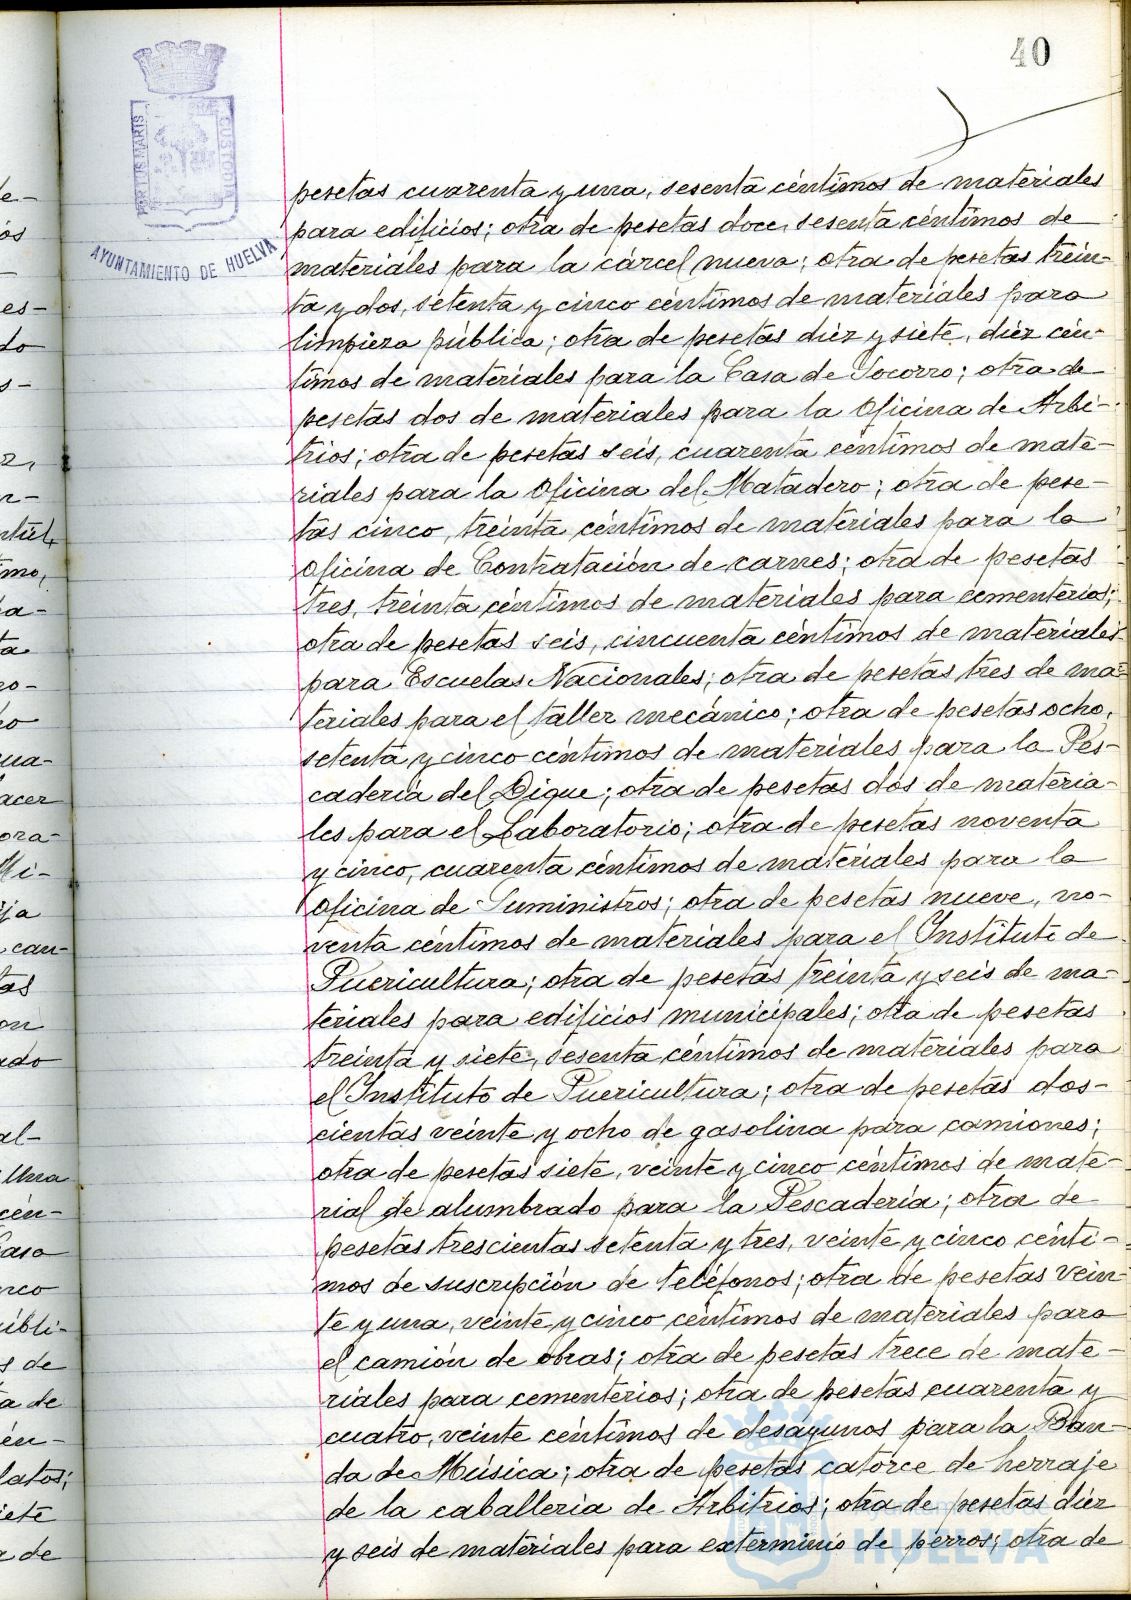 40
PORTUS MARIS
CUSTODIA
AYUNTAMIENTO DE HUELVA
pesetas cuarenta y una, sesenta céntimos de materiales
para edificios; otra de pesetas doce, sesenta céntimos de
materiales para la cárcel nueva; otra de pesetas trein-
ta y dos, setenta y cinco céntimos de materiales para
limpieza pública; otra de pesetas diéz y siete, diéz cén-
timos de materiales para la Casa de Socorro; otra de
pesetas dos de materiales para la Oficina de Arbi-
trios; otra de pesetas seis, cuarenta céntimos de mate-
riales para la Oficina del Matadero; otra de pese-
tas cinco, treinta céntimos de materiales para la
Oficina de Contratación de carnes; otra de pesetas
tres, treinta céntimos de materiales para cementerios;
otra de pesetas seis, cincuenta céntimos de materiales
para Escuelas Nacionales; otra de pesetas tres de ma-
teriales para el taller mecánico; otra de pesetas ocho,
setenta y cinco céntimos de materiales para la Pes-
cadería del Dique; otra de pesetas dos de materia-
les para el Laboratorio; otra de pesetas noventa
y cinco, cuarenta céntimos de materiales para la
Oficina de Suministros; otra de pesetas nueve, no-
venta céntimos de materiales para el Instituto de
Puericultura; otra de pesetas treinta y seis de ma-
teriales para edificios municipales; otra de pesetas
treinta y siete, sesenta céntimos de materiales para
el Instituto de Puericultura; otra de pesetas dos-
cientas veinte y ocho de gasolina para camiones;
otra de pesetas siete, veinte y cinco céntimos de mate-
rial de alumbrado para la Pescadería; otra de
pesetas trescientas setenta y tres, veinte y cinco cénti-
mos de suscripción de teléfonos; otra de pesetas vein-
te y una, veinte y cinco céntimos de materiales para
el camión de obras; otra de pesetas trece de mate-
riales para cementerios; otra de pesetas cuarenta y
cuatro, veinte céntimos de desayunos para la Ban-
da de Música; otra de pesetas catorce de herraje
de la caballería de Arbitrios; otra de pesetas diéz
y seis de materiales para exterminio de perros; otra de
Ayuntamiento de
HUELVA